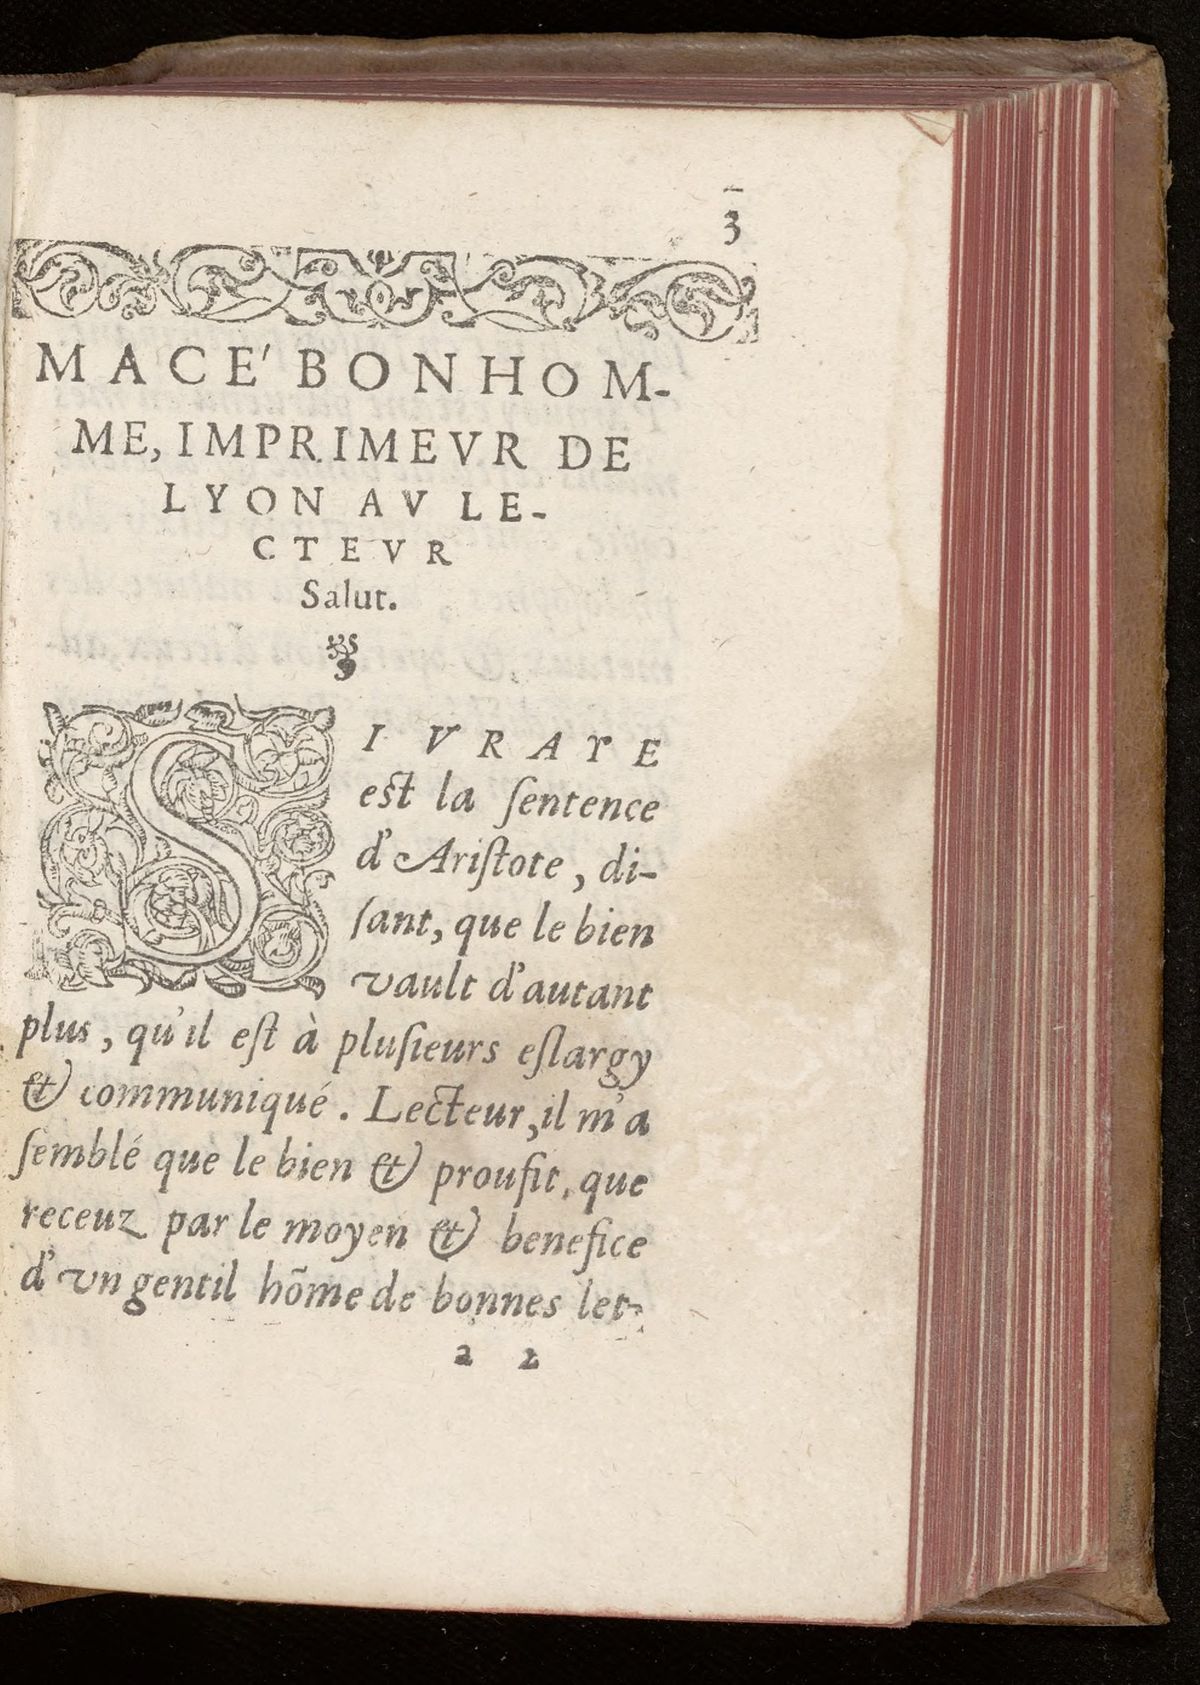 3
MACE' BONHOM-
ME, IMPRIMEVR DE
LYON AV LE-
CTEVR
Salut.
SI VRAYE
eſt la ſentence
d'Ariſtote, di-
ſant, que le bien
vault d'autant
plus, qu'il eſt à pluſieurs eſlargy
& communiqué. Lecteur, il m'a
ſemblé que le bien & proufit, que
receuz par le moyen & benefice
d'vn gentil hõme de bonnes let-
a 2